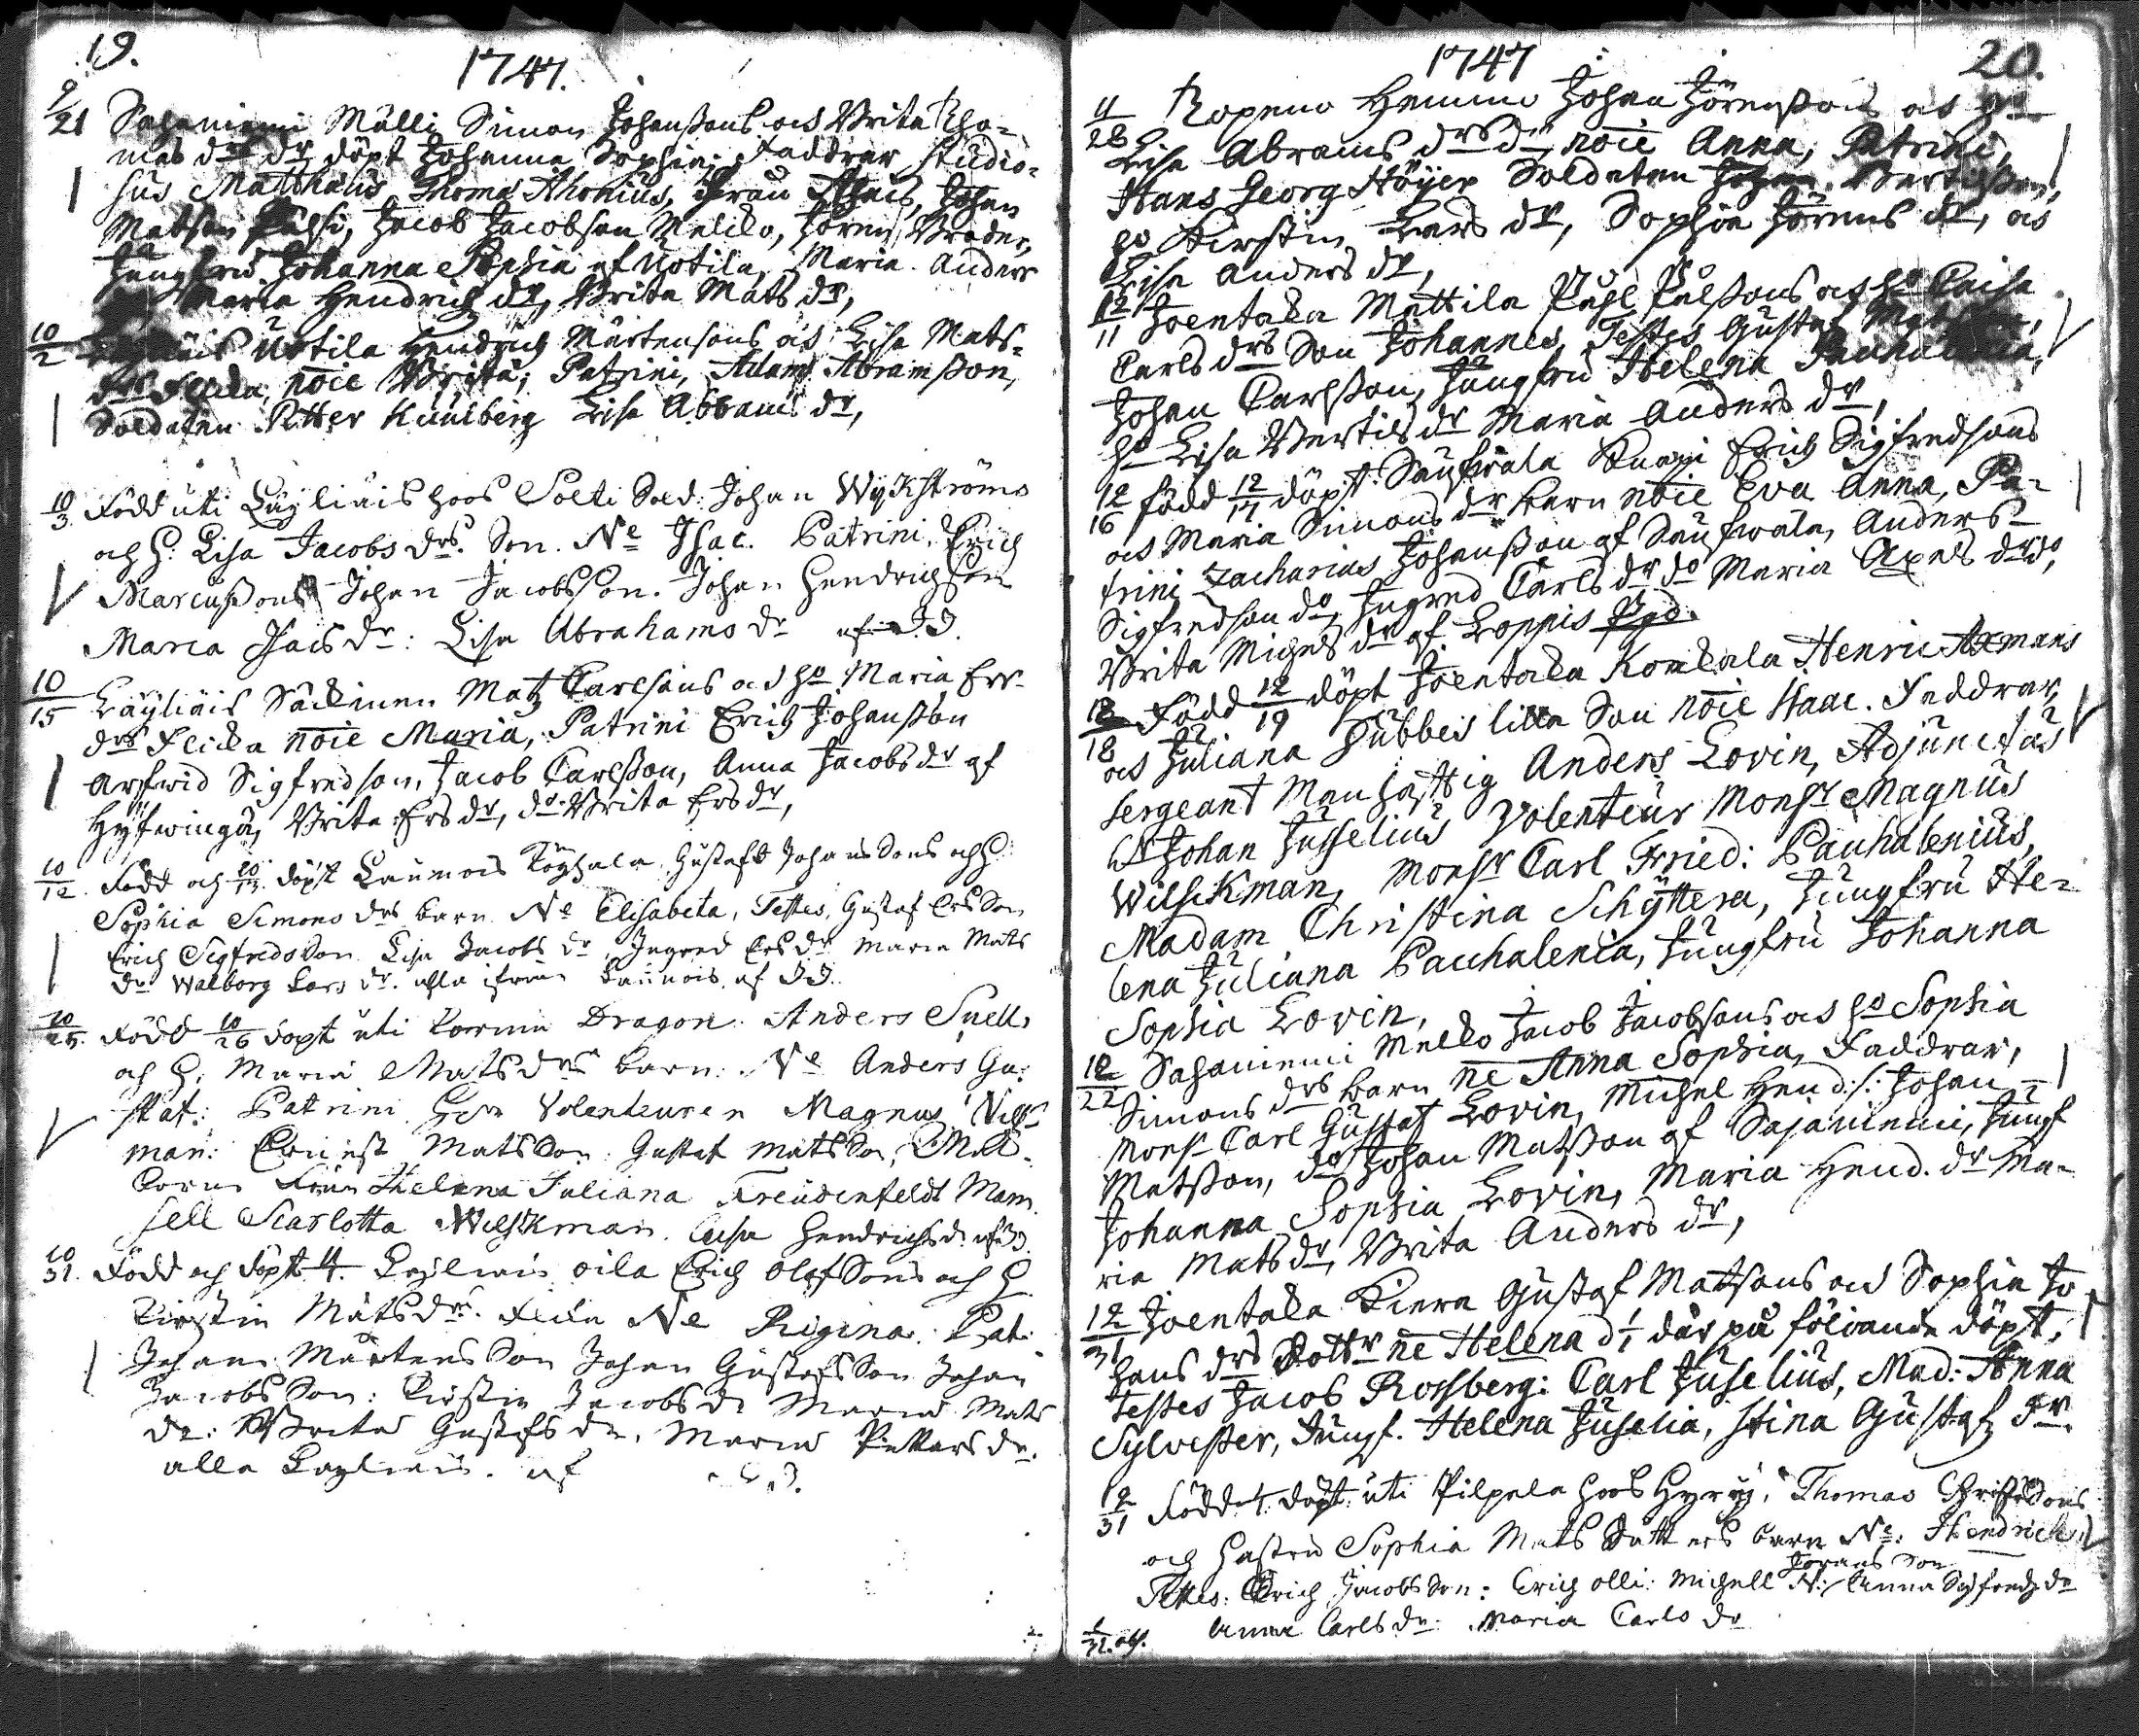 19.
1747.
9/21 Sahaniemi Mälli Simon Johanssons och Brita Tho-
mas drs dr döpt Johanna Sophia. Faddrar Studio-
sus Matthæus Thomæ Ahonius, Johan
Matsson Jacob Jacobsson Melcko, Jören
Jungfru Johanna Sophia af Uotila, Maria Anders
Maria Hendrichs dr, Brita Mats dr,
10/2 Uotila Hendrich Mårtensons och Lisa Mats-
drs Flicka, noie Brita; Patrini, Adam Abramsson,
Soldaten Petter Kuulberg Lisa Abrams dr,
10/3 Född uti Läyliäis hoos Solti Sold: Johan Wyckströms
och H: Lisa Jacobs drs. Son. Ne Isac. Patrini. Erich
Marcussons Johan Jacobsson. Johan Hendrichsson
Maria Isacs dr: Lisa Abrahams dr af J.J.
10/15 Läyliäis Säckinen Matz Carlsons och ho Maria Ers-
drs Flicka noie Maria, Patrini Erich Johansson
Arfwid Sigfredson, Jacob Carlsson, Anna Jacobs dr af
Hyfwingä, Brita Ers dr, do Brita Ers dr,
10/12 Född och 10/13 döpt Launois Göghala Gustaf Johanssons och H:
Sophia Simons drs barn Ne Elisabeta, Testes, Gustaf Ersson
Erich Sigfredsson Lisa Jacobs dr, Ingred Ers dr Maria Mats
dr Walborg Lars dr. alla ifrån Launois af J.J.
10/25 Född 10/26 döpt uti Dragon Anders Snell
och H: Maria Mats drs barn: Ne Anders Gu-
staf: Patrini Herr Volenteuren Magnus Wils-
man: Ernest Matsson: Gustaf Matsson,
Fru Helena Juliana Freudenfeldt Mam
sell Scarlotta Wilskman. Caisa Hendrichs dr af J.J.
10/31 Född och döpt 4. Läyliäis oila Erich Olofsons och H
Kirstin Mats drs. Flicka Ne Rigina: Pat:
Johan Mårtensson Johan Gustafsson Johan
Jacobsson: Kirstin Jacobs dr Maria Mats
dr: Brita Gustafs dr. Maria Pettars dr.
alla Läyliäis. af J.J.
1747
20.
11/28 Topeno Hemmo Johan Jörenssons och ho
Lisa Abrams drs dr, noie Anna, Patrini,
Hans Georg Höijer Soldaten Bertilsson,
ho Kirstin Lars dr, Sophia Jörens dr, och
Lisa Anders dr,
12/11 Joentaka Mattila Påhl Pålssons och ho Caisa
Carls drs Son Johannes, Testes Gustaf
Johan Carlsson, Jungfru Helena Pacchalenia,
ho Lisa Bertils dr Maria Anders dr,
12/16 född 12/17 döpt. Saufwala Knapi Erich Sigfredsons
och Maria Simons dr barn noie Eva Anna, Pa-
trini Zacharias Johansson af Saufwala, Anders
Sigfredson do, Ingred Carls dr do Maria Axels dr do,
Brita Michels dr af Loppis Pgd.
12/18 Född 12/19 döpt Joentaka Konkala Henric Axmans
och Juliana Hubbes lilla Son noie Isaac. Faddrar,
Sergeant Manhafftig Anders Lovin, Adjunctus
Dr Johan Jusselius Volenteur Monsr Magnus
Wilsckman, Monsr Carl Fried: Pauchalenius,
Madam Christina Schyttera, Jungfru He-
lena Juliana Pacchalenia, Jungfru Johanna
Sophia Lovin,
12/22 Sahaniemi Melko Jacob Jacobsons och ho Sophia
Simons drs barn ne Anna Sophia, Faddrar,
Monsr Carl Gustaf Lovin, Michel Hend:s: Johan
Matsson, do Johan Matsson af Sajaniemi, Jungf
Johanna Sophia Lovin, Maria Hend. dr Ma-
ria Mats dr, Brita Anders dr,
12/31 Joentaka Kiera Gustaf Matsons och Sophia Jo
hans drs Dottr ne Helena d 1/1 där på föliande döpt,
Testes Jacob Rossberg: Carl Juselius, Mad: Anna
Sylvester, Jungf. Helena Juselia, Stina Gustafz dr.
12/31 Född 1/1 döpt uti Pilpala hoos Hyrÿ, Thomas
och hustru Sophia Mats dotters barn Ne: Hendrich
Testes. Erich Jacobsson: Erich olli: Michell Jörans Son N: Anna Sigfredz dr
Anna Carls dr: Maria Carls dr